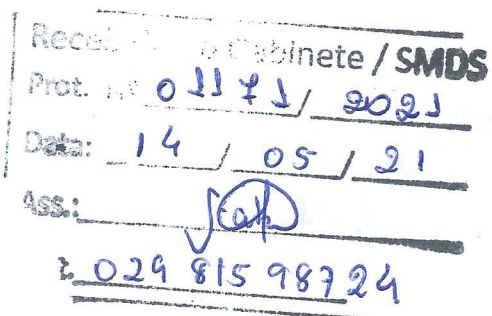 Gabinete / SMDS
Prot. Nº 01171/ 2021
Data: 14 / 05 / 21
Ass.:
029 815 987 24